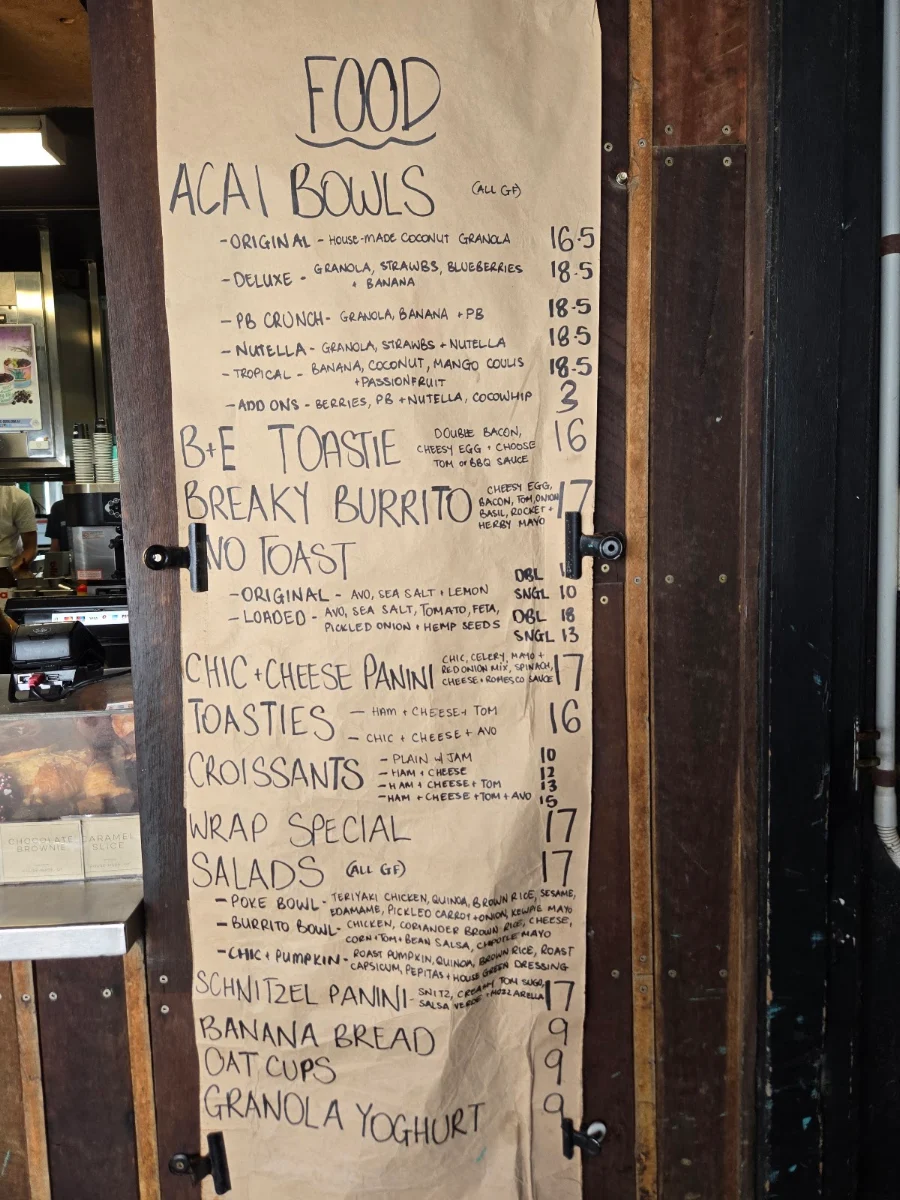 FOOD
ACAI BOWLS (ALL GF)
- ORIGINAL - HOUSE-MADE COCONUT GRANOLA 16.5
- DELUXE - GRANOLA, STRAWBS, BLUEBERRIES 18.5
+ BANANA
- PB CRUNCH - GRANOLA, BANANA + PB 18.5
- NUTELLA - GRANOLA, STRAWBS + NUTELLA 18.5
- TROPICAL - BANANA, COCONUT, MANGO COULIS 18.5
+ PASSIONFRUIT
- ADD ONS - BERRIES, PB + NUTELLA, COCOWHIP 3
B+E TOASTIE DOUBLE BACON, 16
CHEESY EGG + CHOOSE
TOM or BBQ SAUCE
BREAKY BURRITO CHEESY EGG, 17
BACON, TOM, ONION
BASIL, ROCKET +
HERBY MAYO
VO TOAST
DBL
- ORIGINAL - AVO, SEA SALT + LEMON SNGL 10
- LOADED - AVO, SEA SALT, TOMATO, FETA, DBL 18
PICKLED ONION + HEMP SEEDS SNGL 13
CHIC + CHEESE PANINI CHIC, CELERY, MAYO + 17
RED ONION MIX, SPINACH,
CHEESE + ROMESCO SAUCE
TOASTIES - HAM + CHEESE + TOM 16
- CHIC + CHEESE + AVO
CROISSANTS - PLAIN W JAM 10
- HAM + CHEESE 12
- HAM + CHEESE + TOM 13
- HAM + CHEESE + TOM + AVO 15
WRAP SPECIAL 17
SALADS (ALL GF) 17
- POKE BOWL - TERIYAKI CHICKEN, QUINOA, BROWN RICE, SESAME,
EDAMAME, PICKLED CARROT + ONION, KEWPIE MAYO
- BURRITO BOWL - CHICKEN, CORIANDER BROWN RICE, CHEESE,
CORN + TOM + BEAN SALSA, CHIPOTLE MAYO
- CHIC + PUMPKIN - ROAST PUMPKIN, QUINOA, BROWN RICE, ROAST
CAPSICUM, PEPITAS + HOUSE GREEN DRESSING
SCHNITZEL PANINI - SNITZ, CREAMY TOM SUGO, 17
SALSA VERDE + MOZZARELLA
BANANA BREAD 9
OAT CUPS 9
GRANOLA YOGHURT 9
CHOCOLATE
BROWNIE
CARAMEL
SLICE